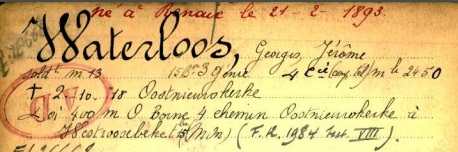 né à Renaix le 21-2-1893.
Waterloos, Georges Jérôme
soldt m 13 15 Bn 39 génie 4 Cie (Camp. tél) m le 2450
† 2-10-18 Oostnieuwkerke
à 400 m O. Borne 4 chemin Oostnieuwkerke à
Westroosebeke (M.M) (F.R, 1984 Fort VIII).